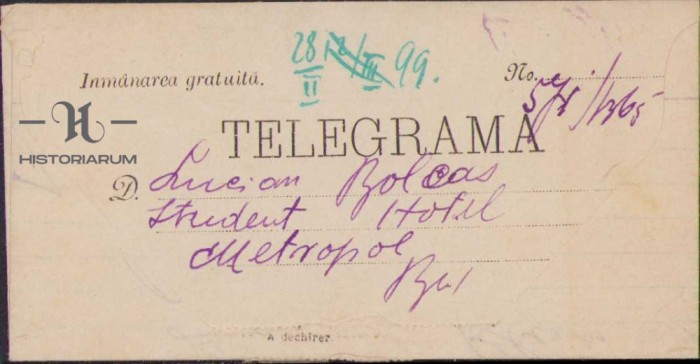 28/II 99.
Inmânarea gratuită.
No.
HISTORIARUM
TELEGRAMA
D. Lucian Bolcas
Student Hotel
Metropol
Buc
A dechirer